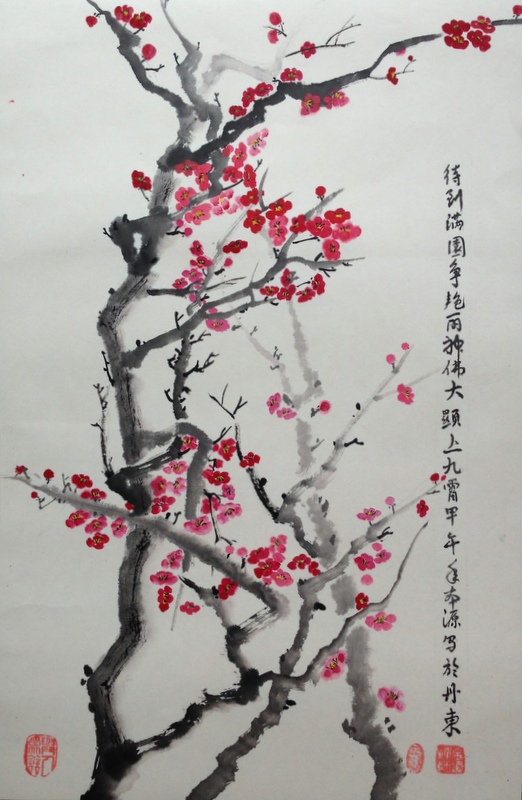 待到满園争艳丽神佛大顕上九霄甲午年本源写於丹東